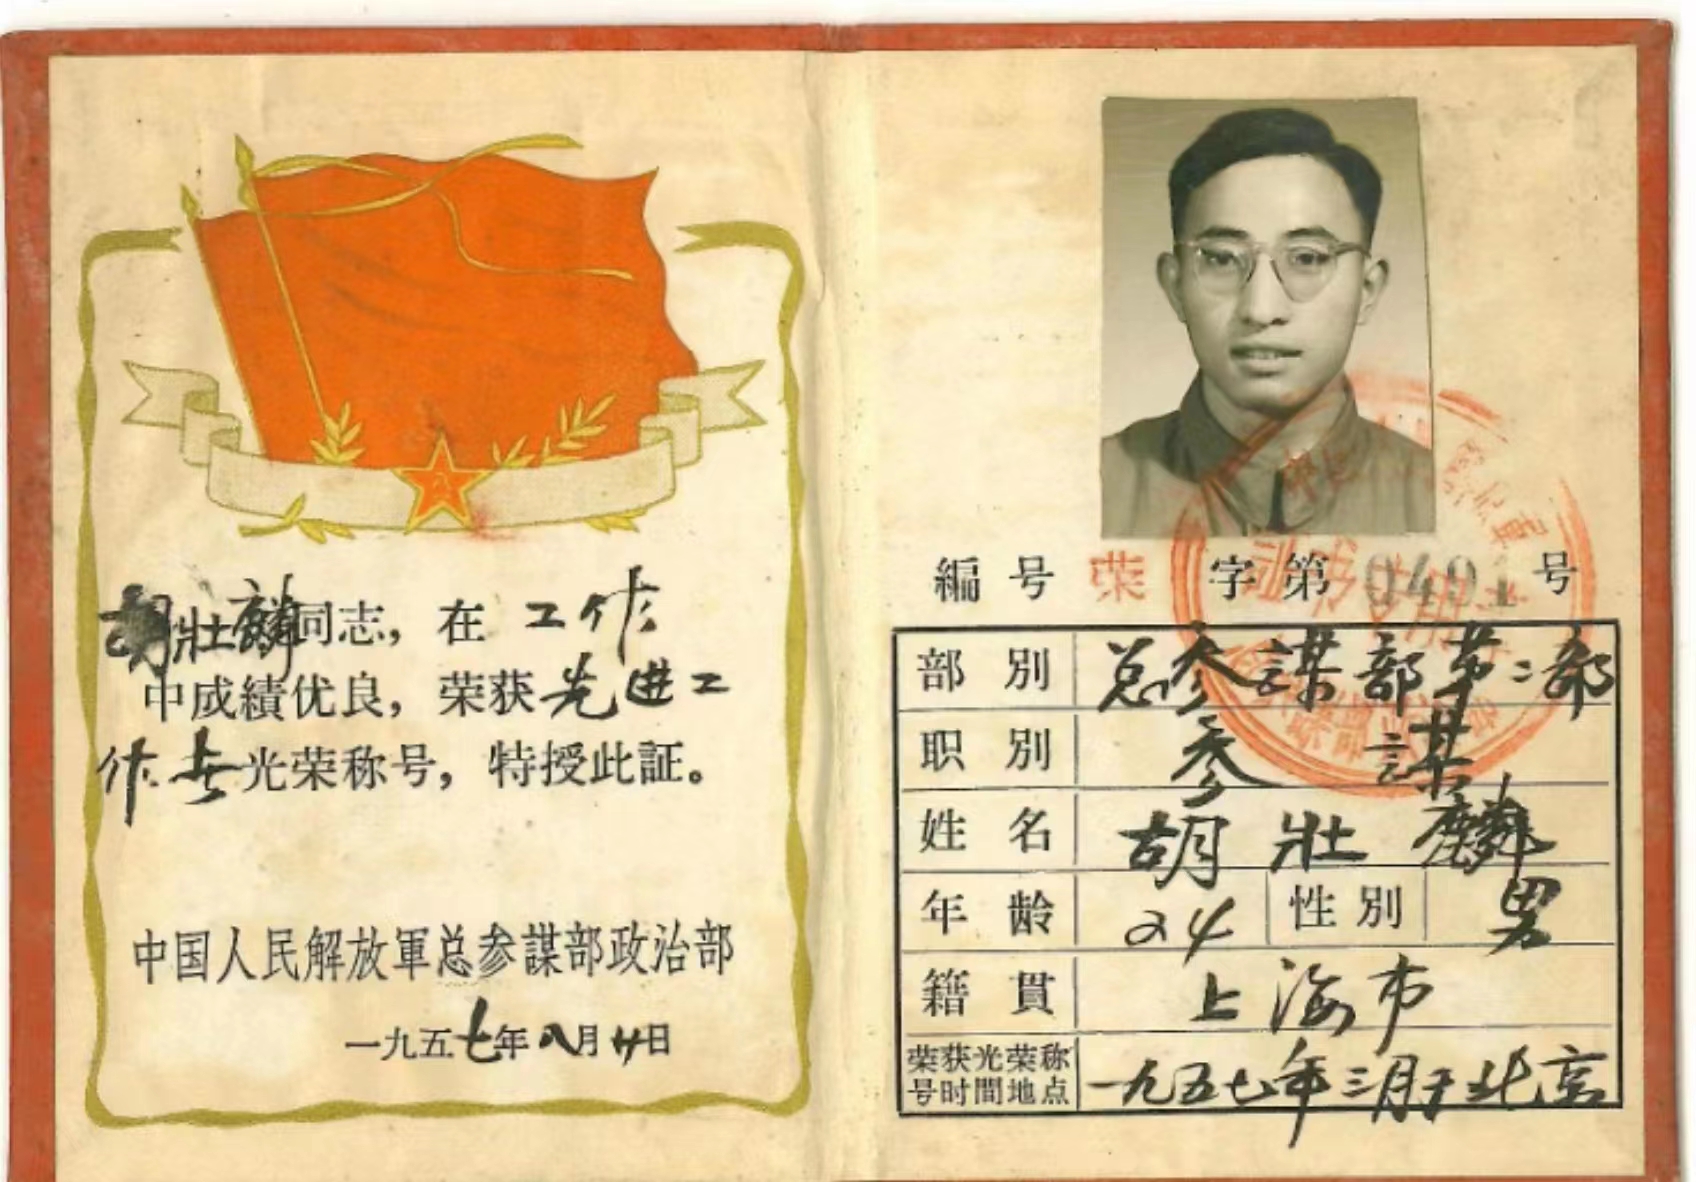 胡壯麟同志，在 工作
中成績优良，荣获先进工
作者光荣称号，特授此証。
中国人民解放軍总参謀部政治部
一九五七年八月廿日
編号 荣 字第 0491 号
部別 总参謀部第二部
职別 参謀
姓名 胡壯麟
年龄 24 性別 男
籍貫 上海市
荣获光荣称
号时間地点 一九五七年三月于北京